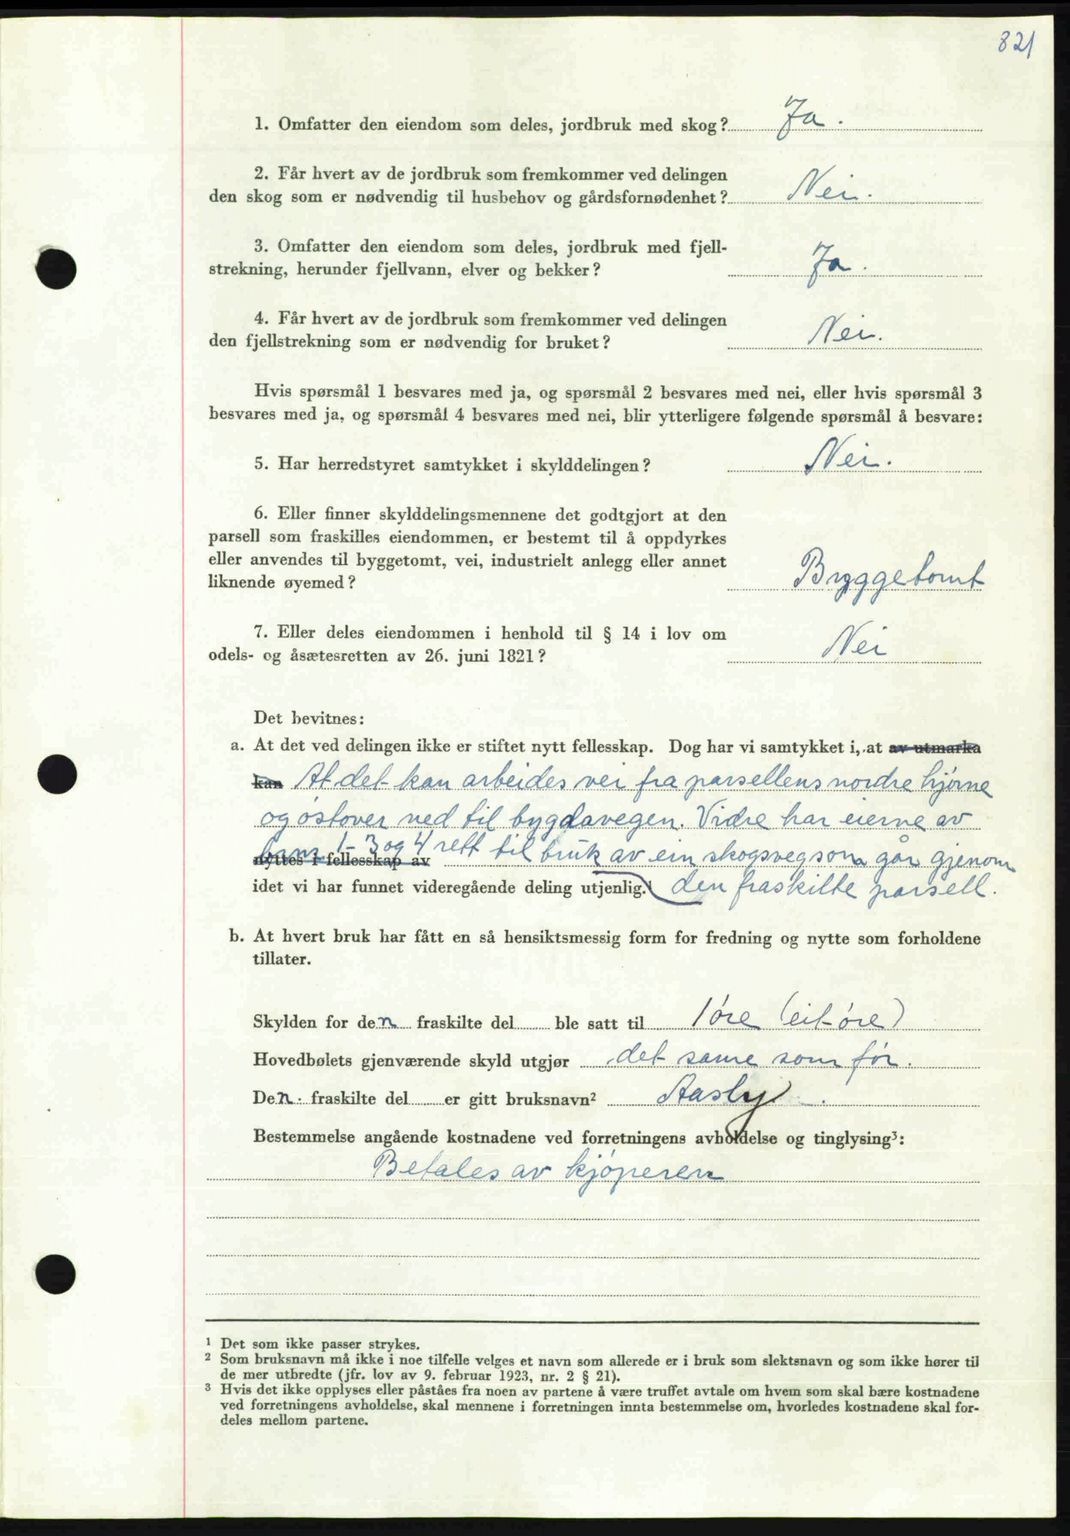 821
1. Omfatter den eiendom som deles, jordbruk med skog? Ja.
2. Får hvert av de jordbruk som fremkommer ved delingen
den skog som er nødvendig til husbehov og gårdsfornødenhet? Nei.
3. Omfatter den eiendom som deles, jordbruk med fjell-
strekning, herunder fjellvann, elver og bekker? Ja.
4. Får hvert av de jordbruk som fremkommer ved delingen
den fjellstrekning som er nødvendig for bruket? Nei.
Hvis spørsmål 1 besvares med ja, og spørsmål 2 besvares med nei, eller hvis spørsmål 3
besvares med ja, og spørsmål 4 besvares med nei, blir ytterligere følgende spørsmål å besvare:
5. Har herredstyret samtykket i skylddelingen? Nei.
6. Eller finner skylddelingsmennene det godtgjort at den
parsell som fraskilles eiendommen, er bestemt til å oppdyrkes
eller anvendes til byggetomt, vei, industrielt anlegg eller annet
liknende øyemed? Byggetomt
7. Eller deles eiendommen i henhold til § 14 i lov om
odels- og åsætesretten av 26. juni 1821? Nei
Det bevitnes:
a. At det ved delingen ikke er stiftet nytt fellesskap. Dog har vi samtykket i, at av utmarka
kan At det kan arbeides vei fra parsellens nordre hjørne
og østover ned til bygdavegen. Vidre har eierne av
nyttes i fellesskap av 1-3 og 4 rett til bruk av ein skogsveg som går gjenom
idet vi har funnet videregående deling utjenlig.¹ den fraskilte parsell.
b. At hvert bruk har fått en så hensiktsmessig form for fredning og nytte som forholdene
tillater.
Skylden for den fraskilte del ble satt til 1 øre (eit øre)
Hovedbølets gjenværende skyld utgjør det same som før.
Den fraskilte del er gitt bruksnavn² Aasly
Bestemmelse angående kostnadene ved forretningens avholdelse og tinglysing³:
Betales av kjøperen
¹ Det som ikke passer strykes.
² Som bruksnavn må ikke i noe tilfelle velges et navn som allerede er i bruk som slektsnavn og som ikke hører til
de mer utbredte (jfr. lov av 9. februar 1923, nr. 2 § 21).
³ Hvis det ikke opplyses eller påståes fra noen av partene å være truffet avtale om hvem som skal bære kostnadene
ved forretningens avholdelse, skal mennene i forretningen innta bestemmelse om, hvorledes kostnadene skal for-
deles mellom partene.